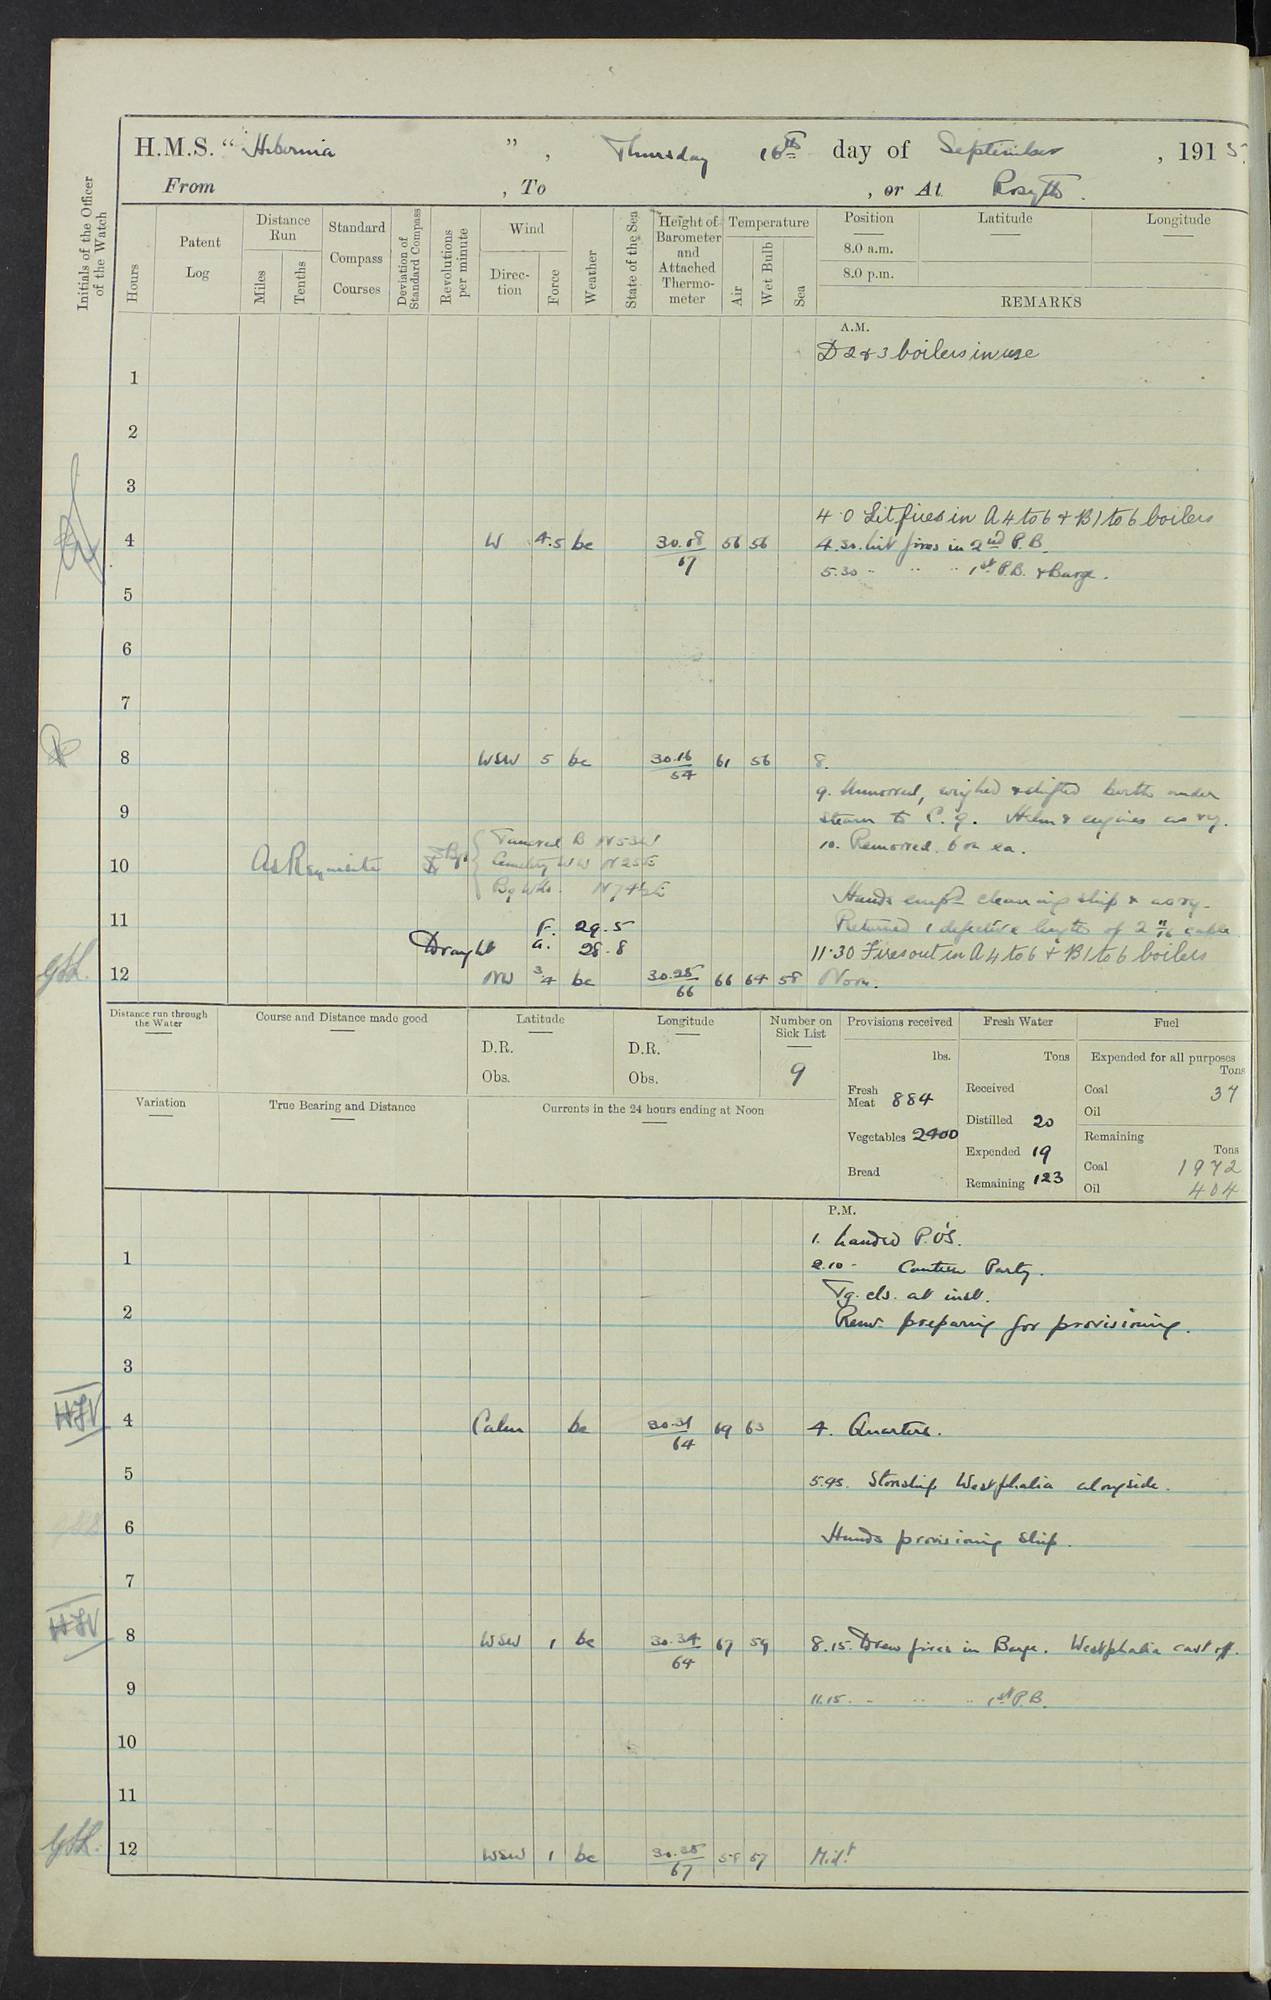 H.M.S. “ Hibernia ” , Thursday 16th day of September , 1915.
From , To , or At Rosyth.
Initials of the Officer of the Watch
Hours
Patent Log
Distance Run
Miles
Tenths
Standard Compass Courses
Deviation of Standard Compass
Revolutions per minute
Wind
Direction
Force
Weather
State of the Sea
Height of Barometer and Attached Thermometer
Temperature
Air
Wet Bulb
Sea
Position
Latitude
Longitude
8.0 a.m.
8.0 p.m.
REMARKS
A.M.
D 2 & 3 boilers in use
1
2
3
4.0 Lit fires in A 4 to 6 & B 1 to 6 boilers
4 W 4.5 bc 30.18 / 67 56 56 4.30. Lit fires in 2nd P.B.
5.30 " " " 1st P.B. & Barge.
5
6
7
8 WSW 5 bc 30.16 / 54 61 56 8.
9. Unmoored, weighed & shifted berth under
9 steam to C.9. Helm & engines as rq.
Tancred B N53W
10 As Requisite Cemetery WW N25E 10. Remoored. 6 on ea.
Hands empd cleaning ship & as rq.
11 Returned 1 defective length of 2 11/16 cable
Draught F. 29.5
a. 28.8
11.30 Fires out in A 4 to 6 & B 1 to 6 boilers
12 NW 3.4 bc 30.25 / 66 66 64 58 Noon.
Distance run through the Water
Course and Distance made good
Latitude
D.R.
Obs.
Longitude
D.R.
Obs.
Number on Sick List
9
Provisions received
lbs.
Fresh Meat 884
Vegetables 2400
Bread
Fresh Water
Tons
Received
Distilled 20
Expended 19
Remaining 123
Fuel
Expended for all purposes
Tons
Coal 37
Oil
Remaining
Tons
Coal 1972
Oil 404
Variation
True Bearing and Distance
Currents in the 24 hours ending at Noon
P.M.
1. Landed P.O's.
1 2.10 - Canteen Party.
Tg. cls. at inst.
2 Remr preparing for provisioning.
3
HFV
4 Calm bc 30.31 / 64 69 63 4. Quarters.
5 5.45. Storeship Westphalia alongside.
6 Hands provisioning ship.
7
HFV
8 WSW 1 bc 30.34 / 64 67 59 8.15. Drew fires in Barge. Westphalia cast off.
9 11.15. " " " 1st P.B.
10
11
12 WSW 1 bc 30.35 / 67 58 57 Midt